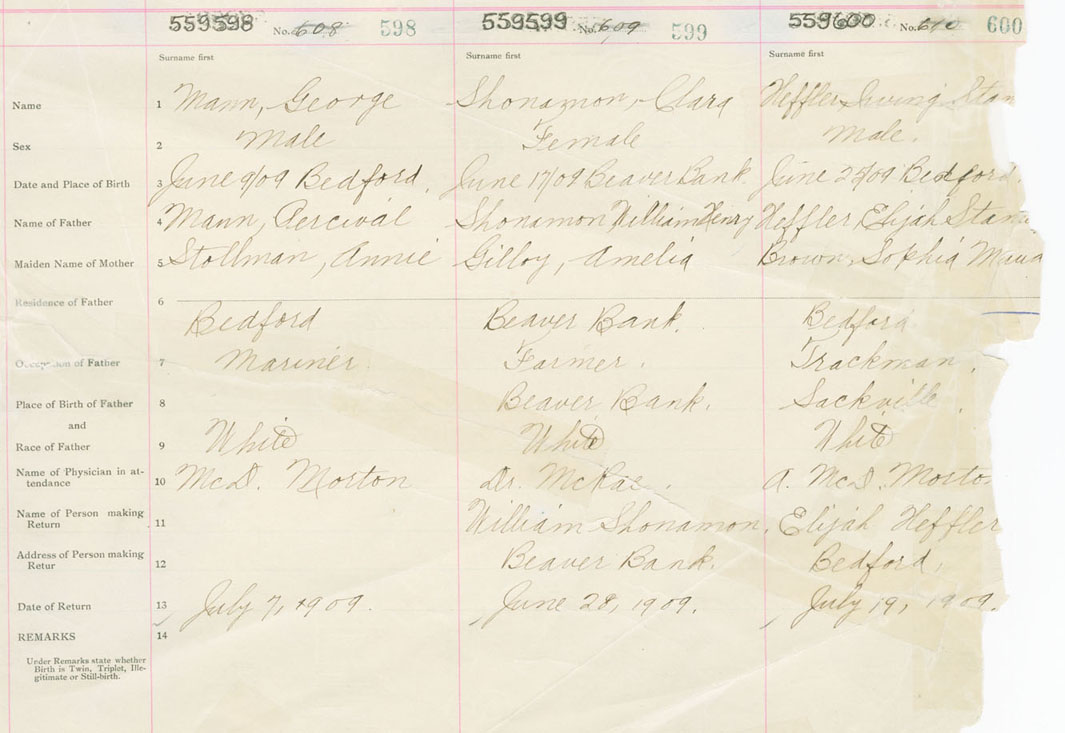 559598 No. 608 598 559599 No. 609 599 559600 No. 610 600
Surname first Surname first Surname first
Name 1 Mann, George Shonamon, Clara Heffler Irving Stan
Sex 2 Male Female Male.
Date and Place of Birth 3 June 9/09 Bedford. June 17/09 Beaver Bank. June 25/09 Bedford.
Name of Father 4 Mann, Percival Shonamon William Henry Heffler Elijah Stan
Maiden Name of Mother 5 Stollman, Annie Gilloy, Amelia Brown, Sophia Maud
Residence of Father 6 Bedford Beaver Bank. Bedford
Occupation of Father 7 Mariner. Farmer. Trackman.
Place of Birth of Father 8 Beaver Bank. Sackville.
and
Race of Father 9 White White White
Name of Physician in at-
tendance 10 McD. Morton Dr. McRae. A. McD. Morto
Name of Person making
Return 11 William Shonamon, Elijah Heffler
Address of Person making
Retur 12 Beaver Bank. Bedford,
Date of Return 13 July 7, 1909. June 28, 1909. July 19, 1909.
REMARKS 14
Under Remarks state whether
Birth is Twin, Triplet, Ille-
gitimate or Still-birth.